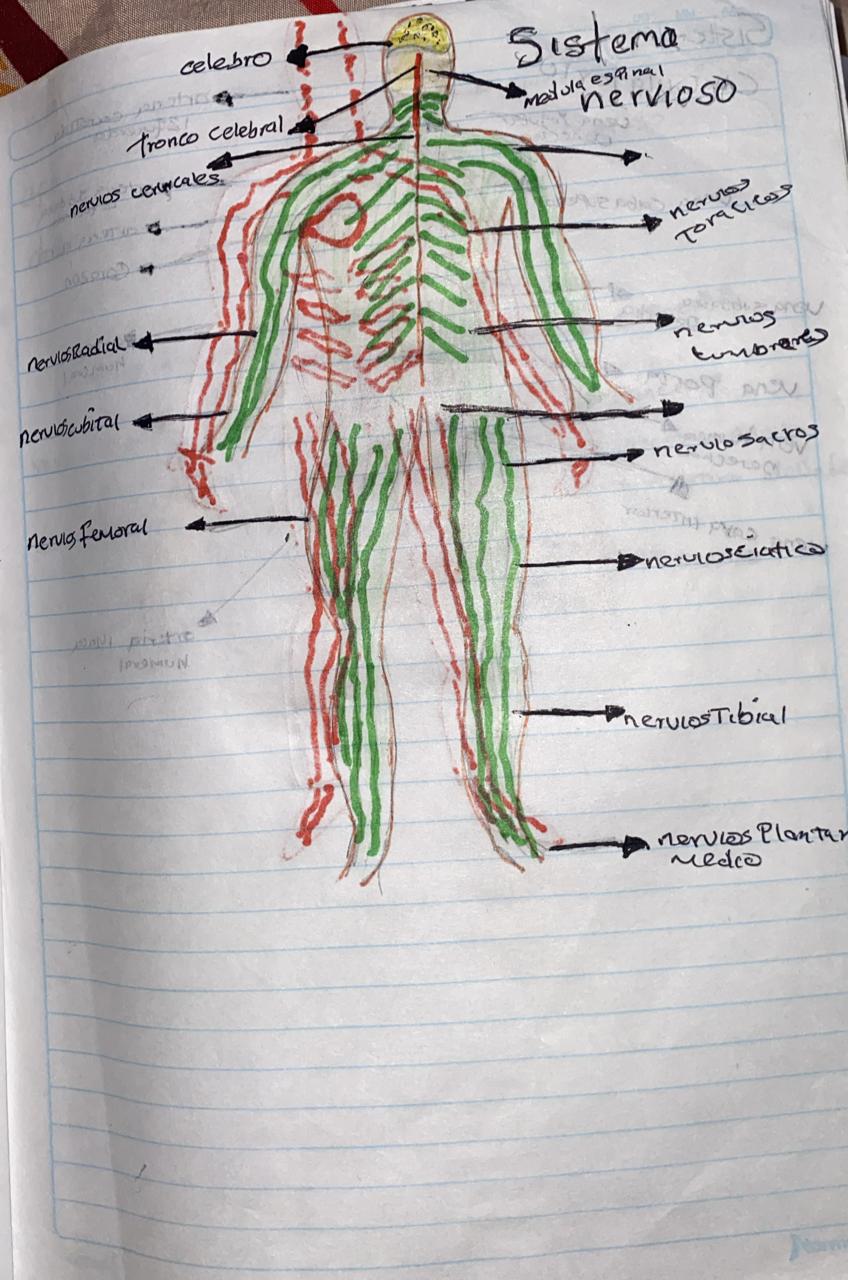 Sistema
nervioso
celebro
medula espinal
tronco celebral
nervios cervicales
nervios
toracicos
nervios
lumbares
nervios Radial
nervios cubital
nervios sacros
nervios femoral
nervios Ciatico
nervios Tibial
nervios Plantar
Medio
arteria
humeral
Corazon
vena porta